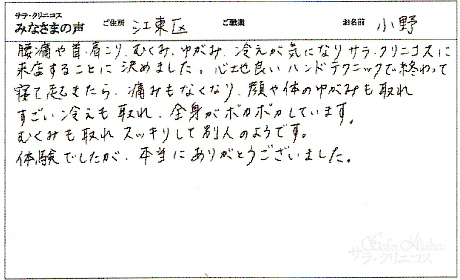 サラ・クリニコス
みなさまの声 ご住所 江東区 ご職業 お名前 小野
腰痛や首・肩こり、むくみ、ゆがみ、冷えが気になりサラ・クリニコスに
来店することに決めました。心地良いハンドテクニックで終わって
寝て起きたら、痛みもなくなり、顔や体のゆがみも取れ
すごい冷えも取れ、全身がポカポカしています。
むくみも取れスッキリして別人のようです。
体験でしたが、本当にありがとうございました。
サラ・クリニコス